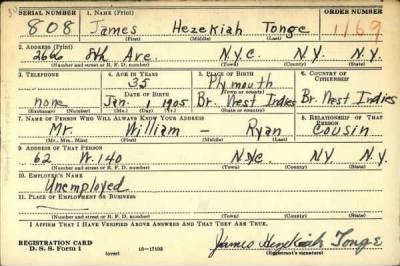 SERIAL NUMBER 1. NAME (Print) ORDER NUMBER
808 James Hezekiah Tonge 1169
(First) (Middle) (Last)
2. ADDRESS (Print)
2666 8th Ave. N.Y.C. N.Y. N.Y.
(Number and street or R. F. D. number) (Town) (County) (State)
3. TELEPHONE 4. AGE IN YEARS 5. PLACE OF BIRTH 6. COUNTRY OF CITIZENSHIP
35 Plymouth
DATE OF BIRTH (Town or county)
none Jan. 1 1905 Br. West Indies Br. West Indies
(Exchange) (Number) (Mo.) (Day) (Yr.) (State or country)
7. NAME OF PERSON WHO WILL ALWAYS KNOW YOUR ADDRESS 8. RELATIONSHIP OF THAT PERSON
Mr. William - Ryan Cousin
(Mr., Mrs., Miss) (First) (Middle) (Last)
9. ADDRESS OF THAT PERSON
62 W. 140 N.Y.C N.Y. N.Y.
(Number and street or R. F. D. number) (Town) (County) (State)
10. EMPLOYER'S NAME
Unemployed
11. PLACE OF EMPLOYMENT OR BUSINESS
(Number and street or R. F. D. number) (Town) (County) (State)
I AFFIRM THAT I HAVE VERIFIED ABOVE ANSWERS AND THAT THEY ARE TRUE.
REGISTRATION CARD
D. S. S. Form 1 (over) 16-17105 James Hezekiah Tonge
(Registrant's signature)